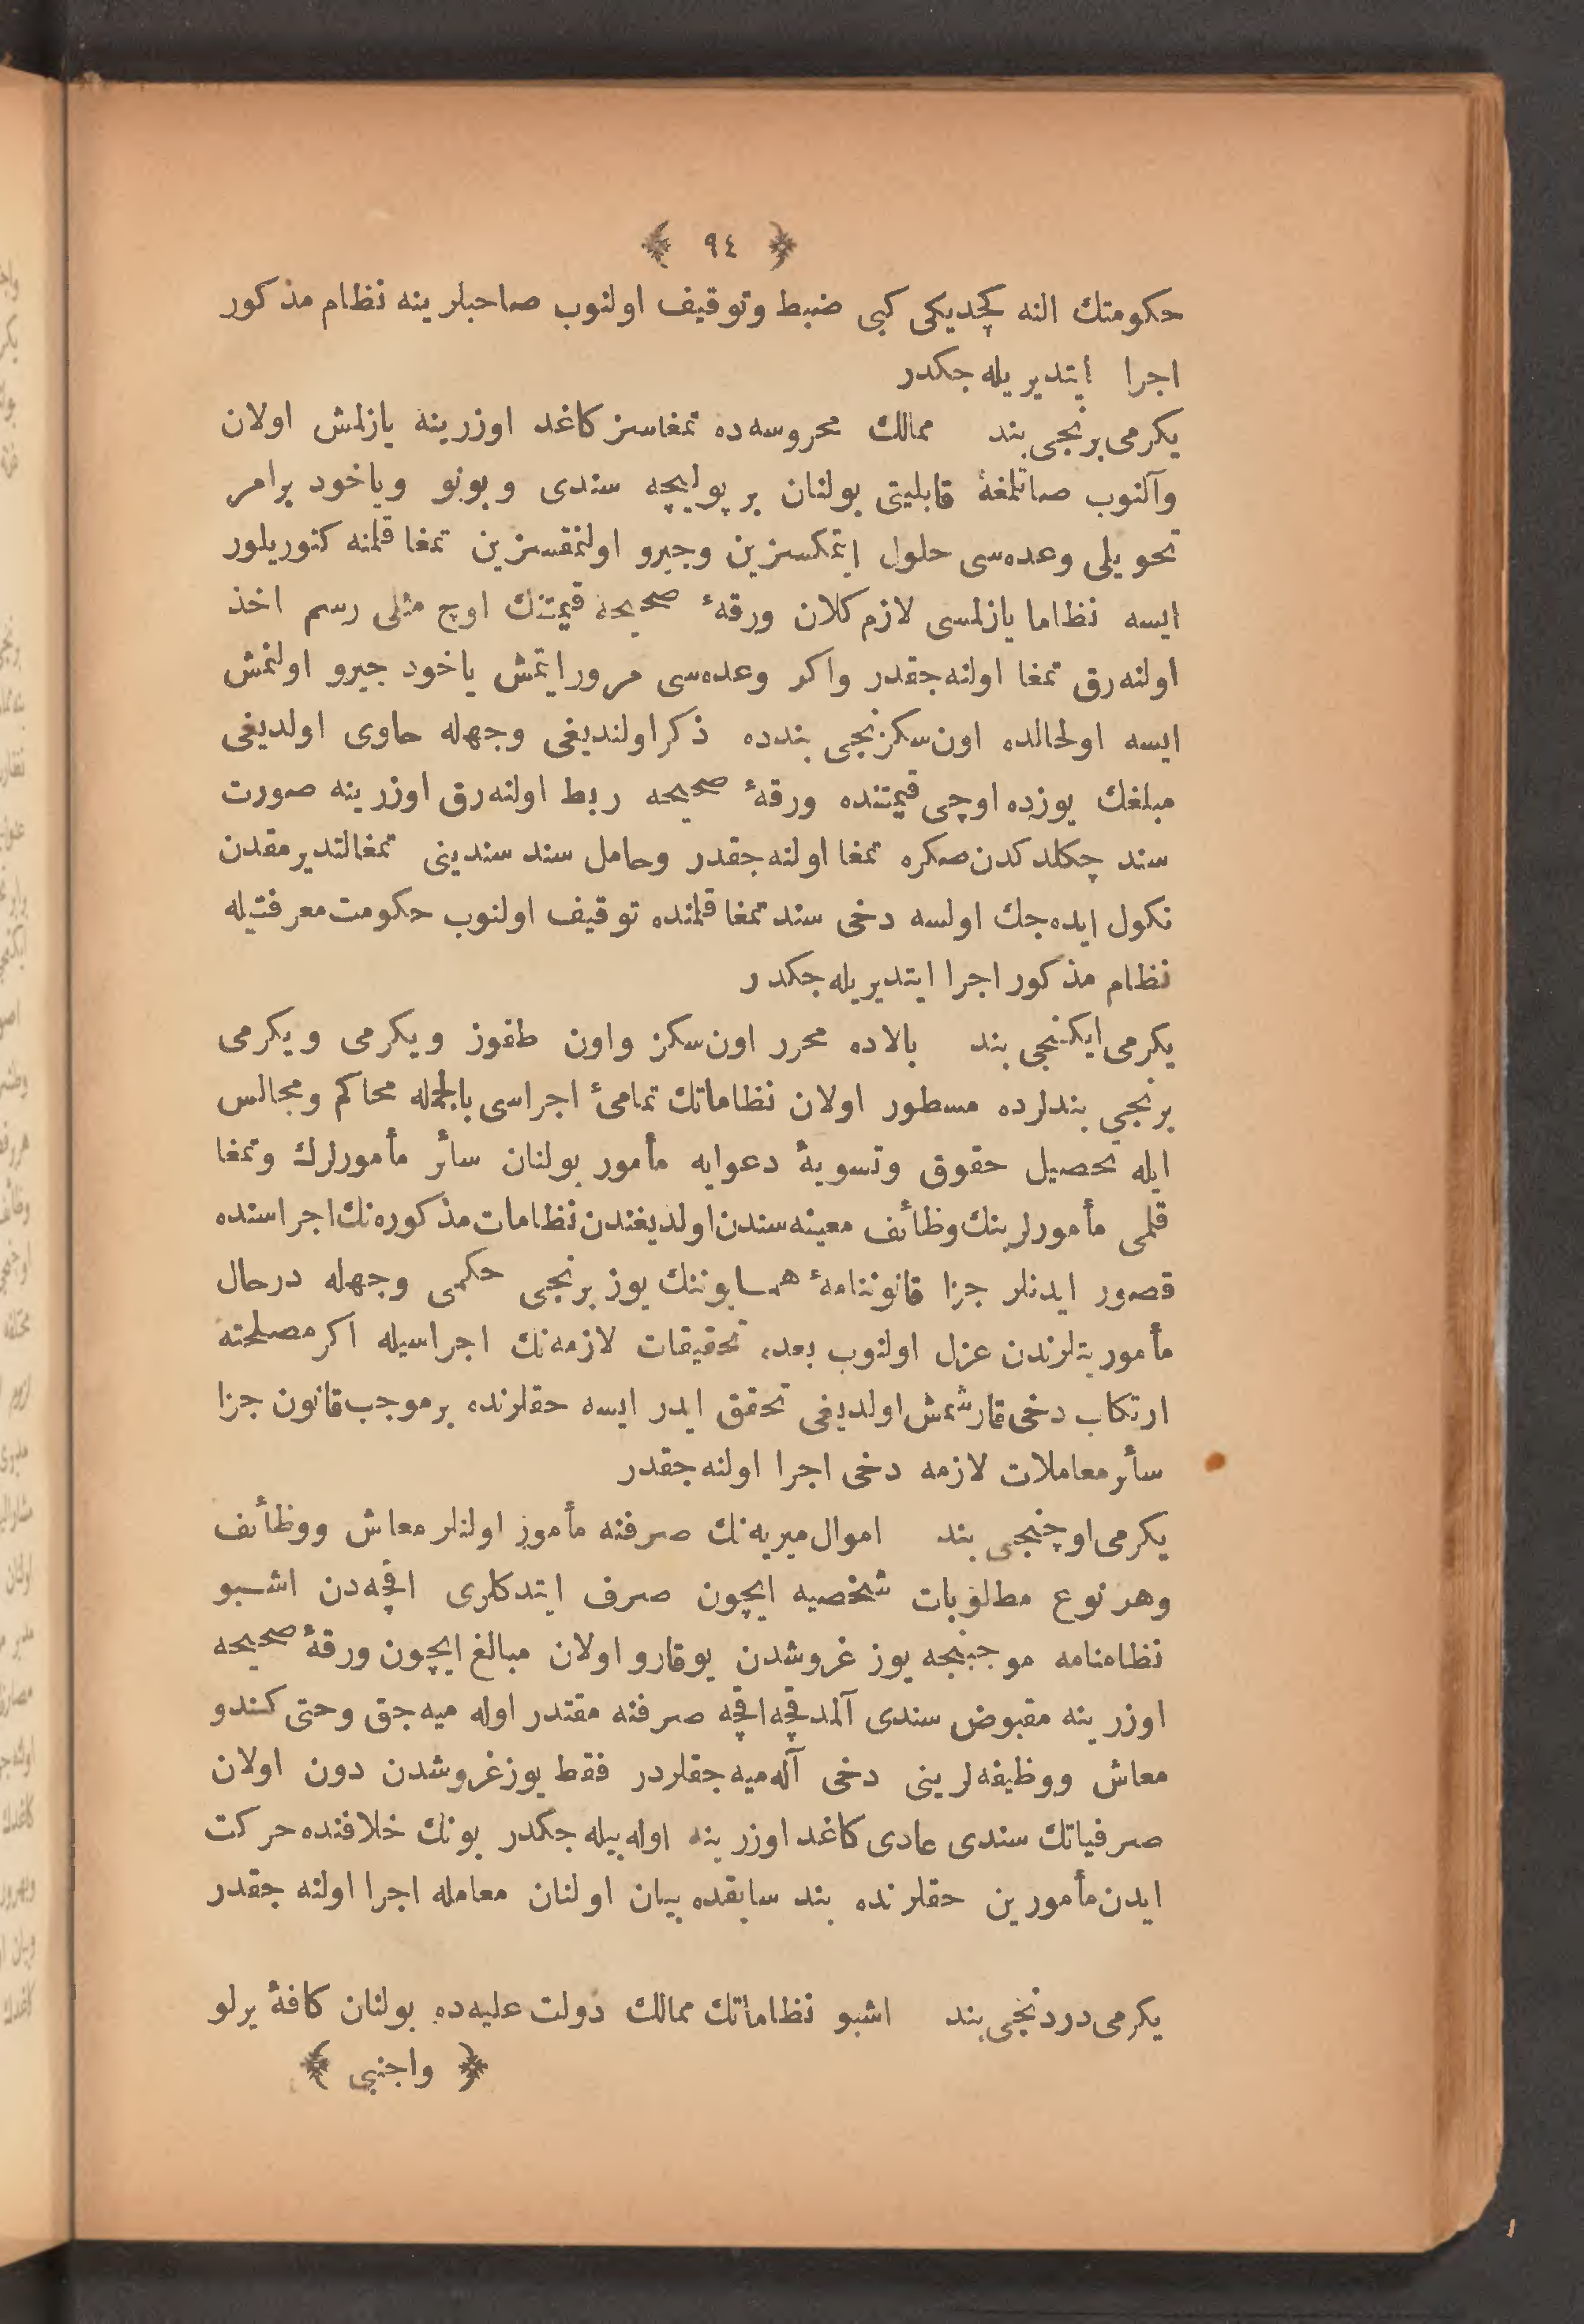 ﴿ ٩٤ ﴾
حكومتك النه كچديكى كبى ضبط وتوقيف اولنوب صاحبلرينه نظام مذكور
اجرا ايتديريله جكدر
يكرمى برنجى بند ممالك محروسه ده تمغاسز كاغد اوزرينه يازلمش اولان
وآلنوب صاتلمغهٔ قابليتى بولنان بر پوليچه سندى وبونو وياخود برامر
تحويلى وعده سى حلول ايتمكسزين وجيرو اولنمقسزين تمغا قلمنه كتوريلور
ايسه نظاما يازلمسى لازم كلان ورقهٔ صحيحه قيمتنك اوچ مثلى رسم اخذ
اولنه رق تمغا اولنه جقدر واكر وعده سى مرور ايتمش ياخود جيرو اولنمش
ايسه اولحالده اون سكزنجى بندده ذكر اولنديغى وجهله حاوى اولديغى
مبلغك يوزده اوچى قيمتنده ورقهٔ صحيحه ربط اولنه رق اوزرينه صورت
سند چكلدكدن صكره تمغا اولنه جقدر وحامل سند سندينى تمغالتديرمقدن
نكول ايده جك اولسه دخى سند تمغا قلمنده توقيف اولنوب حكومت معرفتيله
نظام مذكور اجرا ايتديريله جكدر
يكرمى ايكنجى بند بالاده محرر اون سكز واون طقوز ويكرمى ويكرمى
برنجى بندلرده مسطور اولان نظاماتك تمامئ اجراسى بالجمله محاكم ومجالس
ايله تحصيل حقوق وتسويهٔ دعوايه مأمور بولنان سائر مأمورلرك وتمغا
قلمى مأمورلرينك وظائف معينه سندن اولديغندن نظامات مذكوره نك اجراسنده
قصور ايدنلر جزا قانوننامهٔ همايوننك يوز برنجى حكمى وجهله درحال
مأموريتلرندن عزل اولنوب بعده تحقيقات لازمه نك اجراسيله اكر مصلحته
ارتكاب دخى قارشمش اولديغى تحقق ايدر ايسه حقلرنده برموجب قانون جزا
سائر معاملات لازمه دخى اجرا اولنه جقدر
يكرمى اوچنجى بند اموال ميريه نك صرفنه مأمور اولنلر معاش ووظائف
وهر نوع مطلوبات شخصيه ايچون صرف ايتدكلرى اقچه دن اشبو
نظامنامه موجبنجه يوز غروشدن يوقارو اولان مبالغ ايچون ورقهٔ صحيحه
اوزرينه مقبوض سندى آلمدقچه اقچه صرفنه مقتدر اوله ميه جق وحتى كندو
معاش ووظيفه لرينى دخى آله ميه جقلردر فقط يوزغروشدن دون اولان
صرفياتك سندى عادى كاغد اوزرينه اوله بيله جكدر بونك خلافنده حركت
ايدن مأمورين حقلرنده بند سابقده بيان اولنان معامله اجرا اولنه جقدر
يكرمى دردنجى بند اشبو نظاماتك ممالك دولت عليه ده بولنان كافهٔ يرلو
﴿ واجنبى ﴾